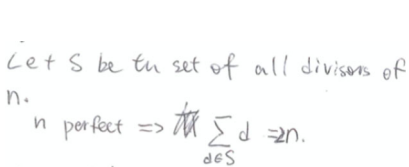 Let S be the set of all divisors of
n.
n perfect => ∑ d = 2n.
d∈S